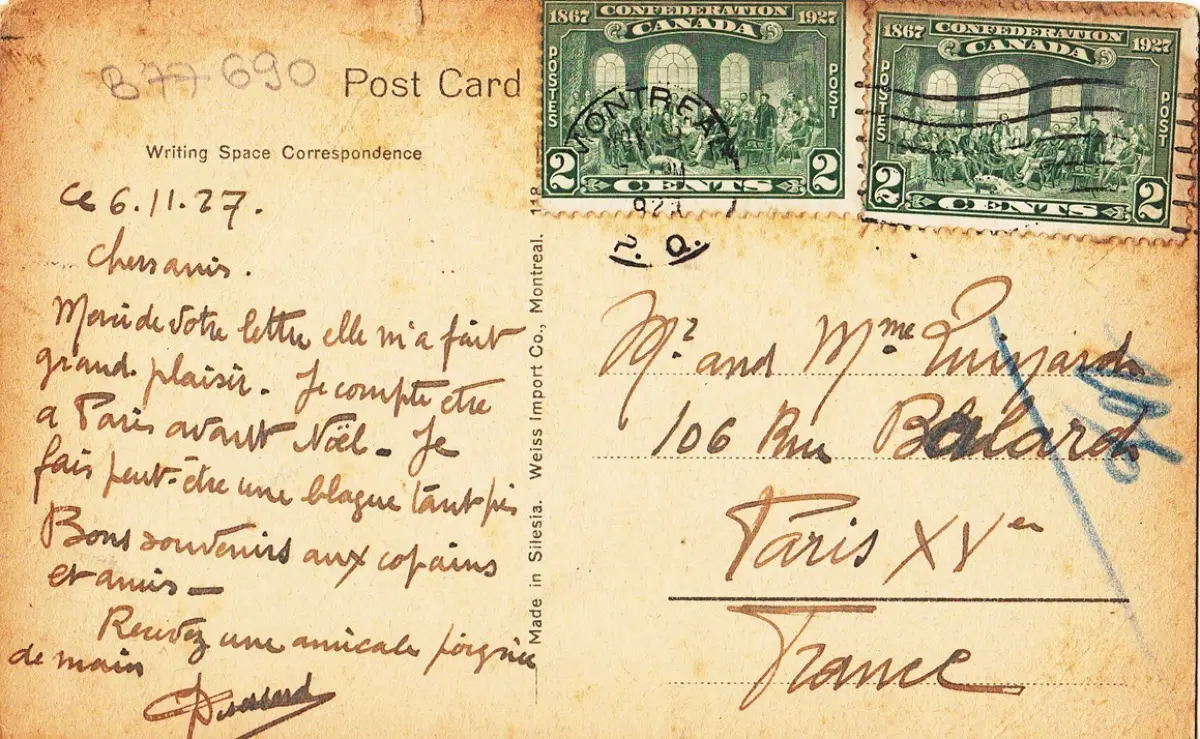 B77 690
Post Card
Writing Space Correspondence
ce 6.11.27.
Chers amis.
Merci de votre lettre elle m'a fait
grand plaisir. Je compte être
a Paris avant Noël. Je
fais peut-être une blague tant pis
Bons souvenirs aux copains
et amis —
Recevez une amicale poignée
de main
Made in Silesia. Weiss Import Co., Montreal. 118
1867 CONFEDERATION 1927
CANADA
POSTES
POST
2 CENTS 2
MONTREAL
P. Q.
1867 CONFEDERATION 1927
CANADA
POSTES
POST
2 CENTS 2
Mr and Mme
106 Rue Balard
Paris XVer
France